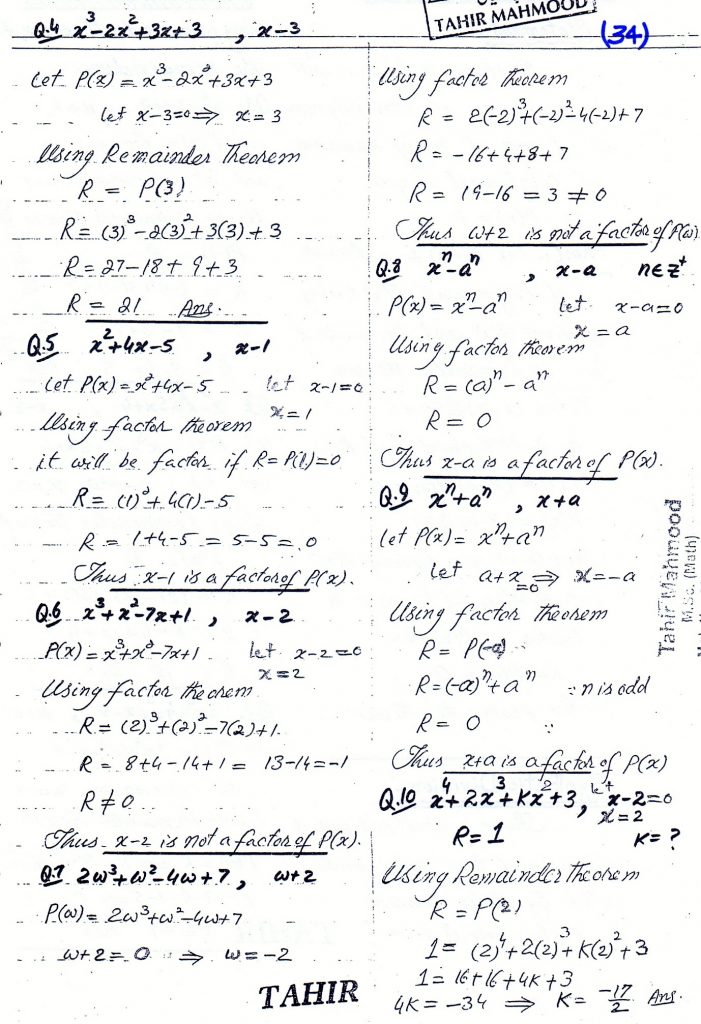 TAHIR MAHMOOD
(34)
Q.4 x³-2x²+3x+3 , x-3
Let P(x) = x³-2x²+3x+3
let x-3=0 ⇒ x = 3
Using Remainder Theorem
R = P(3)
R = (3)³-2(3)²+3(3)+3
R = 27-18+9+3
R = 21 Ans.
Q.5 x²+4x-5 , x-1
Let P(x) = x²+4x-5 let x-1=0
x=1
Using factor theorem
it will be factor if R=P(1)=0
R = (1)²+4(1)-5
R = 1+4-5 = 5-5 = 0
Thus x-1 is a factor of P(x).
Q.6 x³+x²-7x+1 , x-2
P(x) = x³+x²-7x+1 let x-2=0
x=2
Using factor theorem
R = (2)³+(2)²-7(2)+1.
R = 8+4-14+1 = 13-14=-1
R ≠ 0
Thus x-2 is not a factor of P(x).
Q.7 2ω³+ω²-4ω+7 , ω+2
P(ω) = 2ω³+ω²-4ω+7
ω+2=0 ⇒ ω=-2
TAHIR
Using factor theorem
R = 2(-2)³+(-2)²-4(-2)+7
R = -16+4+8+7
R = 19-16 = 3 ≠ 0
Thus ω+2 is not a factor of P(ω)
Q.8 xⁿ-aⁿ , x-a n∈Z⁺
P(x) = xⁿ-aⁿ let x-a=0
x = a
Using factor theorem
R = (a)ⁿ - aⁿ
R = 0
Thus x-a is a factor of P(x).
Q.9 xⁿ+aⁿ , x+a
let P(x) = xⁿ+aⁿ
let a+x=0 ⇒ x=-a
Using factor theorem
R = P(-a)
R = (-a)ⁿ+aⁿ ∵ n is odd
R = 0 ∵
Thus x+a is a factor of P(x)
Q.10 x⁴+2x³+Kx²+3, let x-2=0
x=2
R=1 K=?
Using Remainder Theorem
R = P(2)
1 = (2)⁴+2(2)³+K(2)²+3
1 = 16+16+4K+3
4K = -34 ⇒ K = -17/2 Ans.
Tahir Mahmood
M.Sc. (Math)